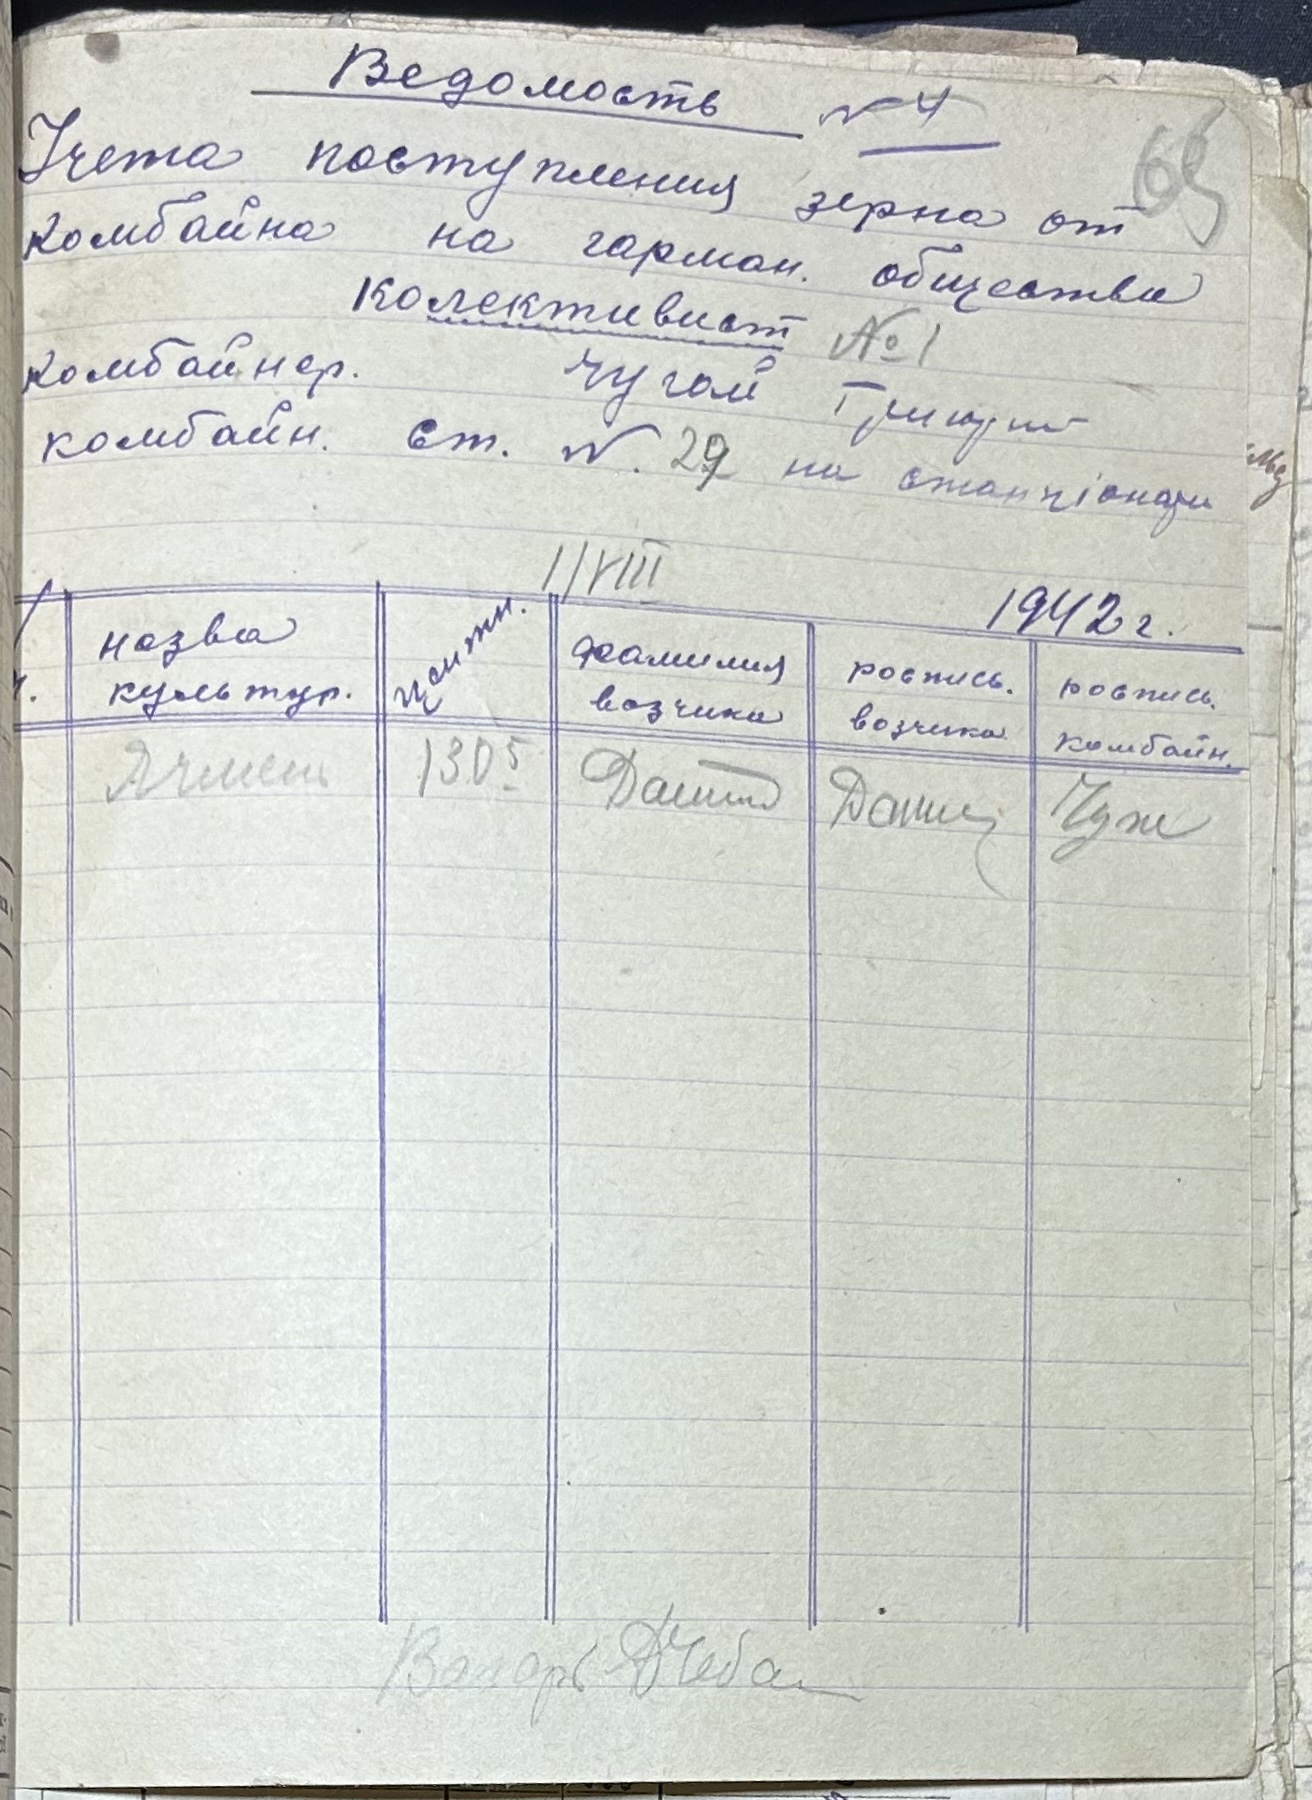 Ведомость № 4
65
Учета поступления зерна от
комбайна на гарман. общества
Колективист №1
комбайнер. Чугай Григорий
комбайн. ст. №. 29 на станціонари
1/VIII 1942 г.
назва культур.
центн.
фамилия возчика
роспись. возчика
роспись. комбайн.
Ячмень 1305